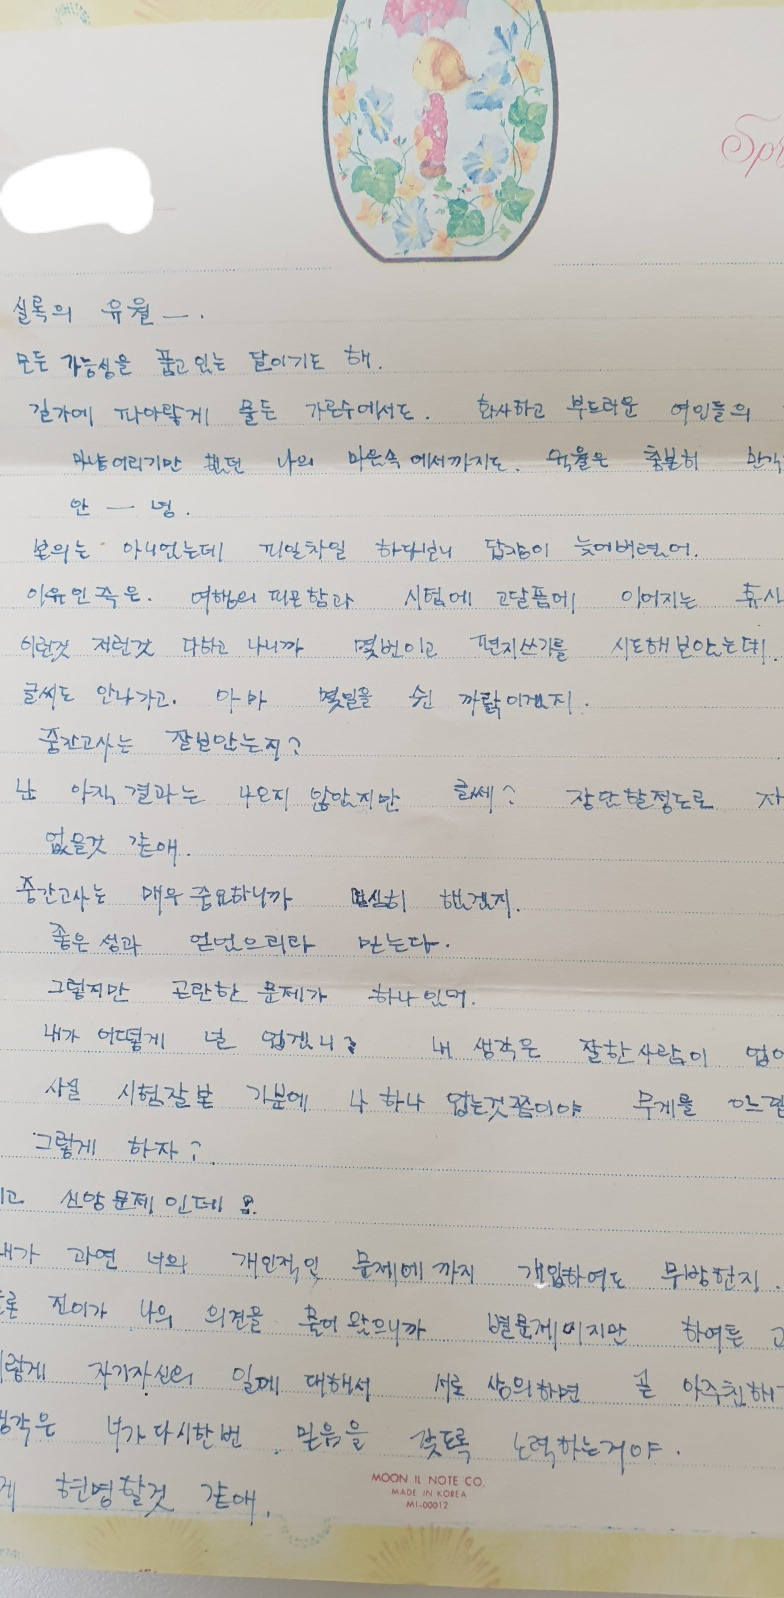 Spr
실록의 유월 —.
모든 가능성을 품고있는 달이기도 해.
길가에 파아랗게 물든 가로수에서도. 화사하고 부드러운 여인들의
마냥어리기만 했던 나의 마음속에서까지도. 유월은 충분히
안 — 녕.
본의는 아니었는데 피일차일 하다보니 답장이 늦어버렸어.
이유인 즉은. 여행의 피곤함과 시험에 고달픔에 이어지는 휴식
이런것 저런것 다하고 나니까 몇번이고 편지쓰기를 시도해보았는데.
글씨도 안나가고. 아마 몇일을 쉰 까닭이겠지.
중간고사는 잘보았는지?
난 아직 결과는 나오지 않았지만 글쎄? 장단할정도로 자
없을것 같애.
중간고사는 매우중요하니까 열심히 했겠지.
좋은성과 얻었으리라 믿는다.
그렇지만 곤란한 문제가 하나있어.
내가 어떻게 널 업겠니? 내 생각은 잘한사람이 업어
사실 시험잘본 기분에 나 하나 업는것쯤이야 무게를 느낄
그렇게 하자?
고 신앙문제인데요.
내가 과연 너의 개인적인 문제에까지 개입하여도 뭐방한지.
론 진이가 나의 의견을 물어왔으니까 별문제이지만 하여튼
렇게 자기자신의 일에 대해서 서로 상의하면 곧 아주친해
생각은 너가다시한번 믿음을 갖도록 노력하는거야.
게 현명할것 같애.
MOON IL NOTE CO.
MADE IN KOREA
MI-00012